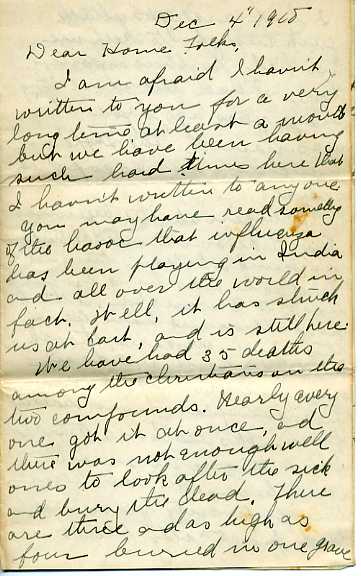 Dec 4" 1918
Dear Home Folks,
I am afraid I havn't
written to you for a very
long time, at least a month
but we have been having
such hard times here that
I havn't written to anyone
You may have read something
of the havoc that influenza
has been playing in India
and all over the world in
fact. Well, it has struck
us at last, and is still here.
We have had 35 deaths
among the christians on the
two compounds. Nearly every
one got it at once, and
there was not enough well
ones to look after the sick
and bury the dead. There
are three and as high as
four buried in one grave